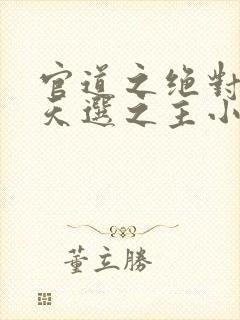 官道之绝對
天選之主小
董立勝